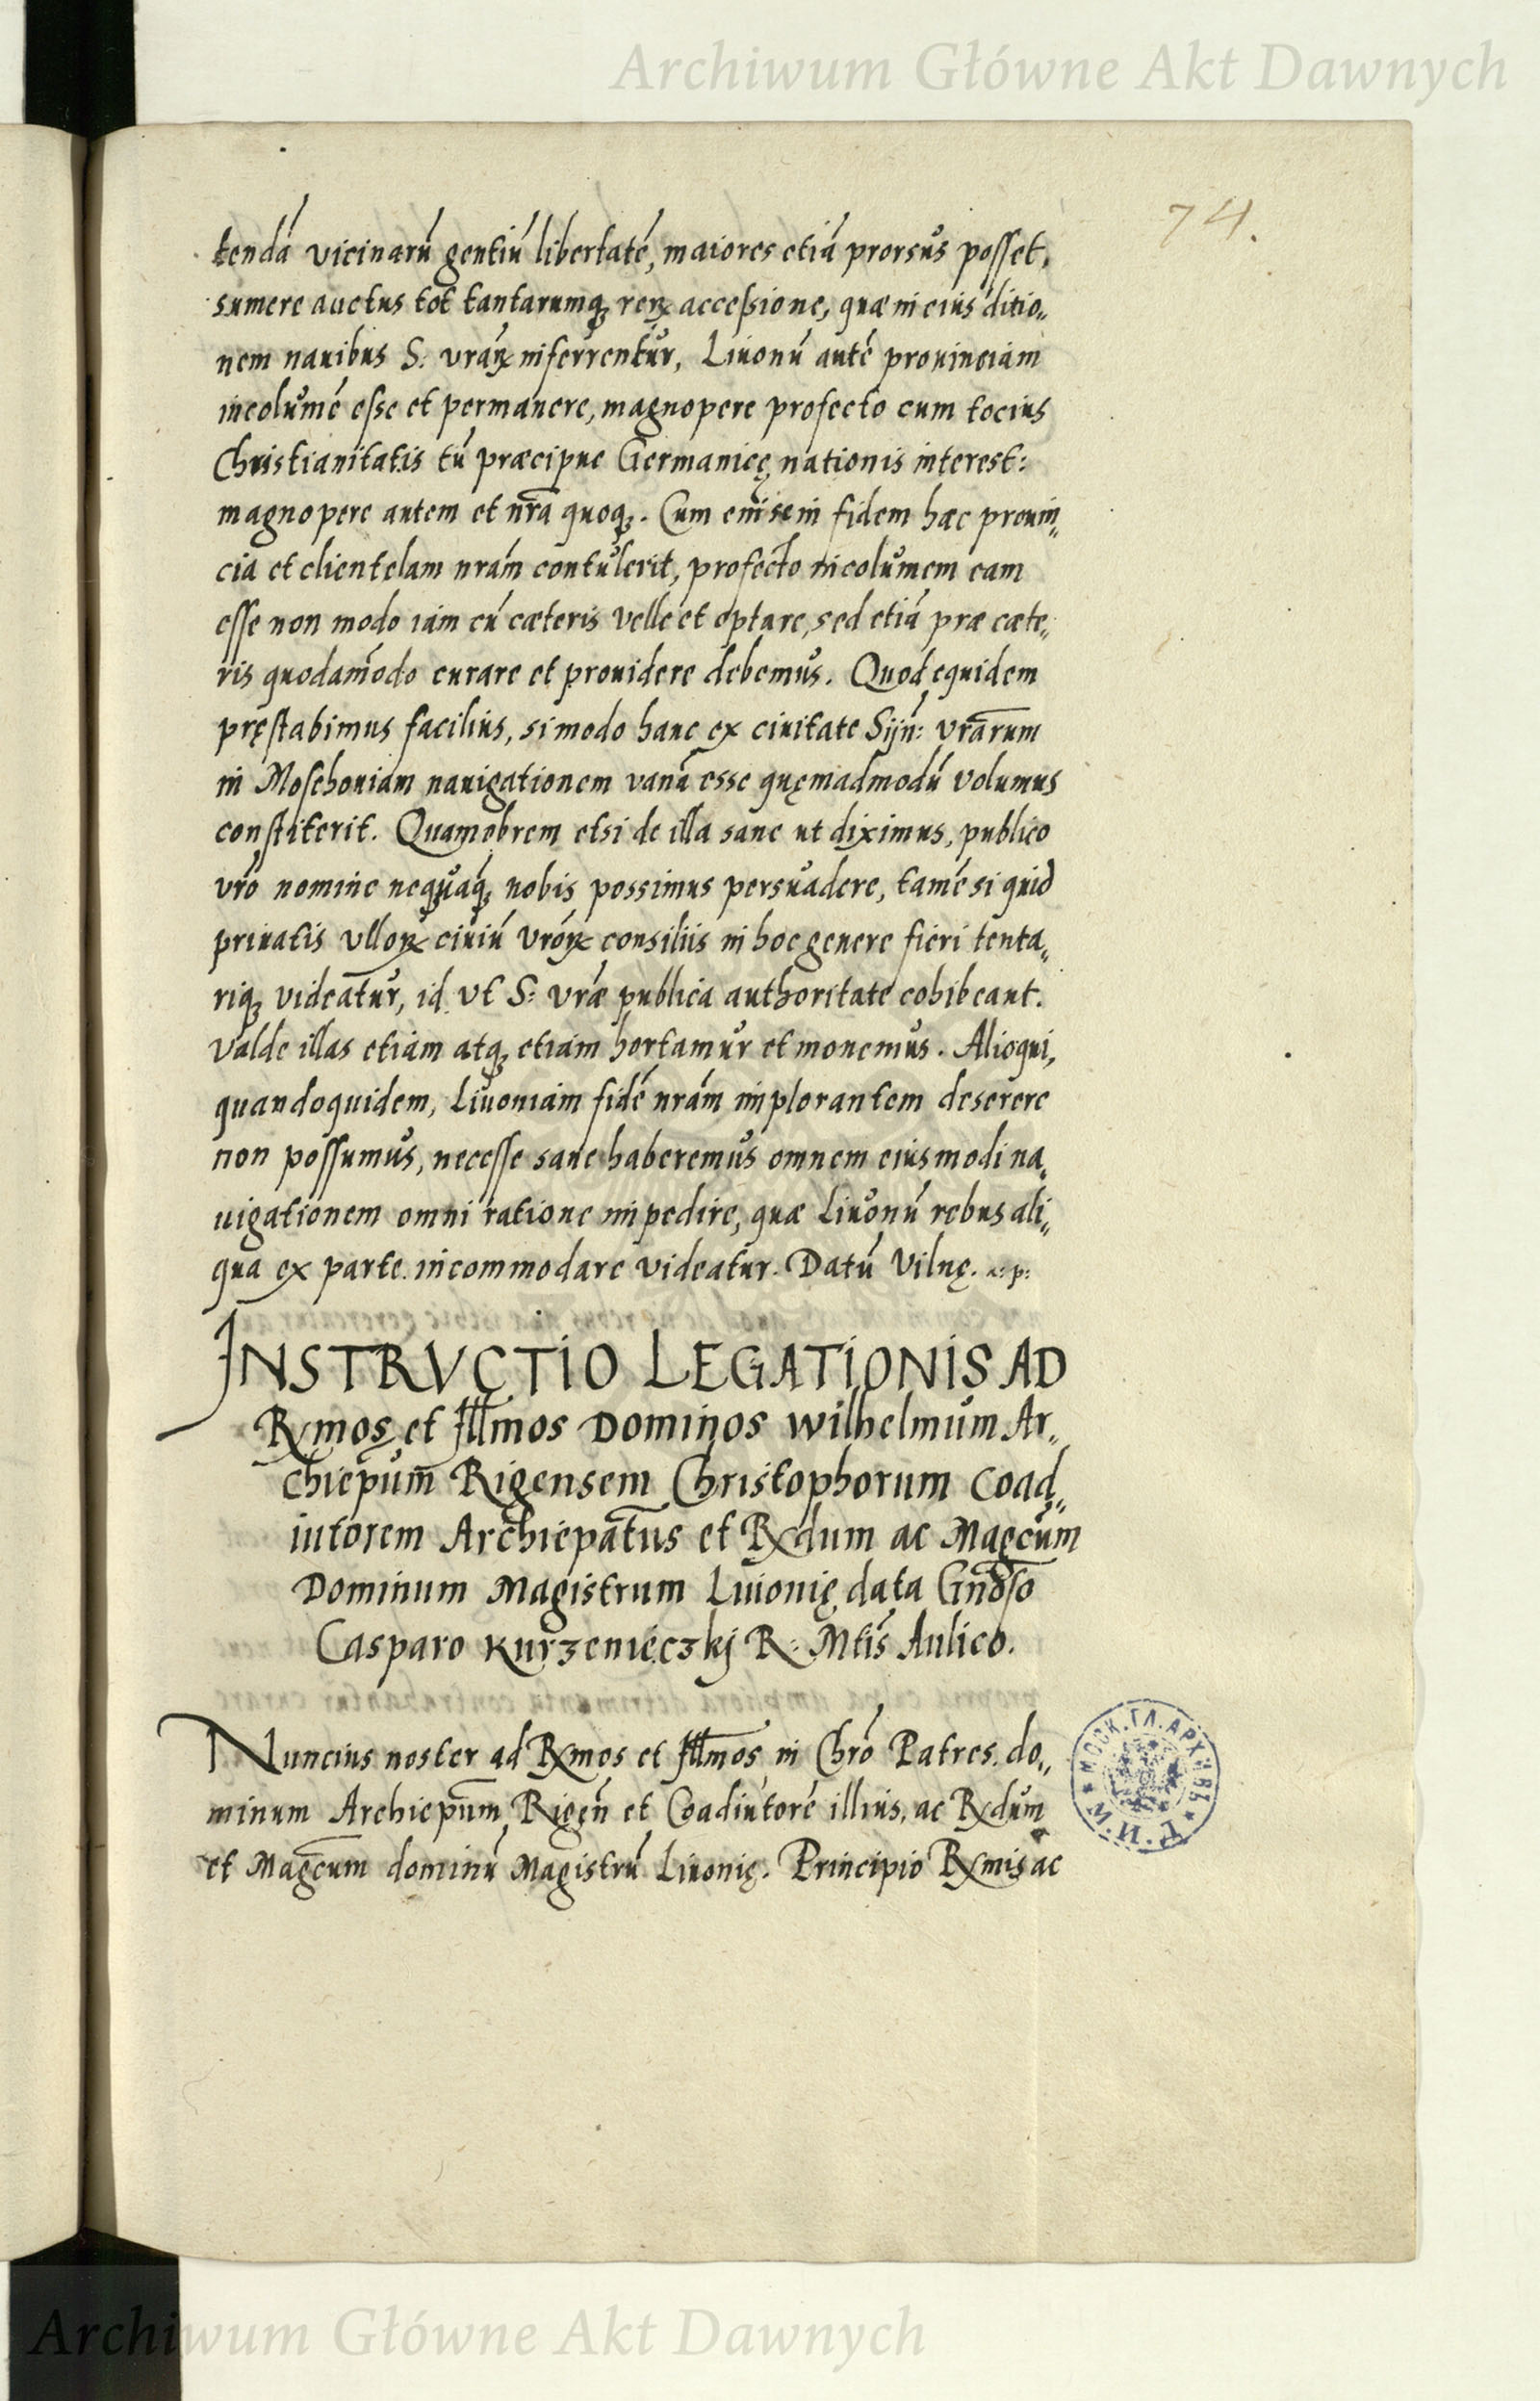 Archiwum Główne Akt Dawnych
74.
tendá vicinarú gentiú libertaté, maiores etiá prorsus posset,
sumere auctus tot tantarumq₃ reꝝ accessione, quæ in eius ditio„
nem nauibus S: vráꝝ inferrentur, Liuonú auté prouinciam
incolumé esse et permanere, magnopere profecto cum tocius
Christianitatis tú præcipue Germanicę nationis interest:
magnopere autem et nr̃a quoq₃. Cum eni se in fidem hæc prouin„
cia et clientelam nrám contulerit, profecto incolumem eam
esse non modo iam cú cæteris velle et optare, sed etiá præ cæte„
ris quodam̃odo curare et prouidere debemus. Quod equidem
pręstabimus facilius, si modo hanc ex ciuitate Sijn̄: vrãrum
in Moschouiam nauigationem vaná esse quęmadmodú volumus
constiterit. Quamobrem etsi de illa sane ut diximus, publico
vr̃o nomine nequaq́₃ nobis possimus persuadere, tamé si quid
priuatis vlloꝝ ciuiú vróꝝ consiliis in hoc genere fieri tenta„
riq₃ videatur, id vt S: vræ publica authoritate cohibeant.
Valde illas etiam atq₃ etiam hortamur et monemus. Alioqui,
quandoquidem, Liuoniam fidé nrám implorantem deserere
non possumus, necesse sane haberemus omnem eiusmodi na„
uigationem omni ratione impedire, quæ Liuonú rebus ali„
qua ex parte incommodare videatur. Datú Vilnę. a: p:
INSTRVCTIO LEGATIONIS AD
Rmos et Illmos Dominos Wilhelmum Ar„
chiep̃um Rigensem Christophorum Coad„
iutorem Archiep̃atus et Rdum ac Mag̃cum
Dominum Magistrum Liuonię data Gn̄oso
Casparo Kurzenieczkj R: Mtis Aulico.
Nuncius noster ad Rmos et Illmos in Chr̃o Patres do„
minum Archiep̃um Rigeñ et Coadiutoré illius, ac Rdum
et Mag̃cum dominú Magistrú Liuonię. Principio Rmis ac
МОСК. ГЛ. АРХИВЪ
М.И.Д.
Archiwum Główne Akt Dawnych